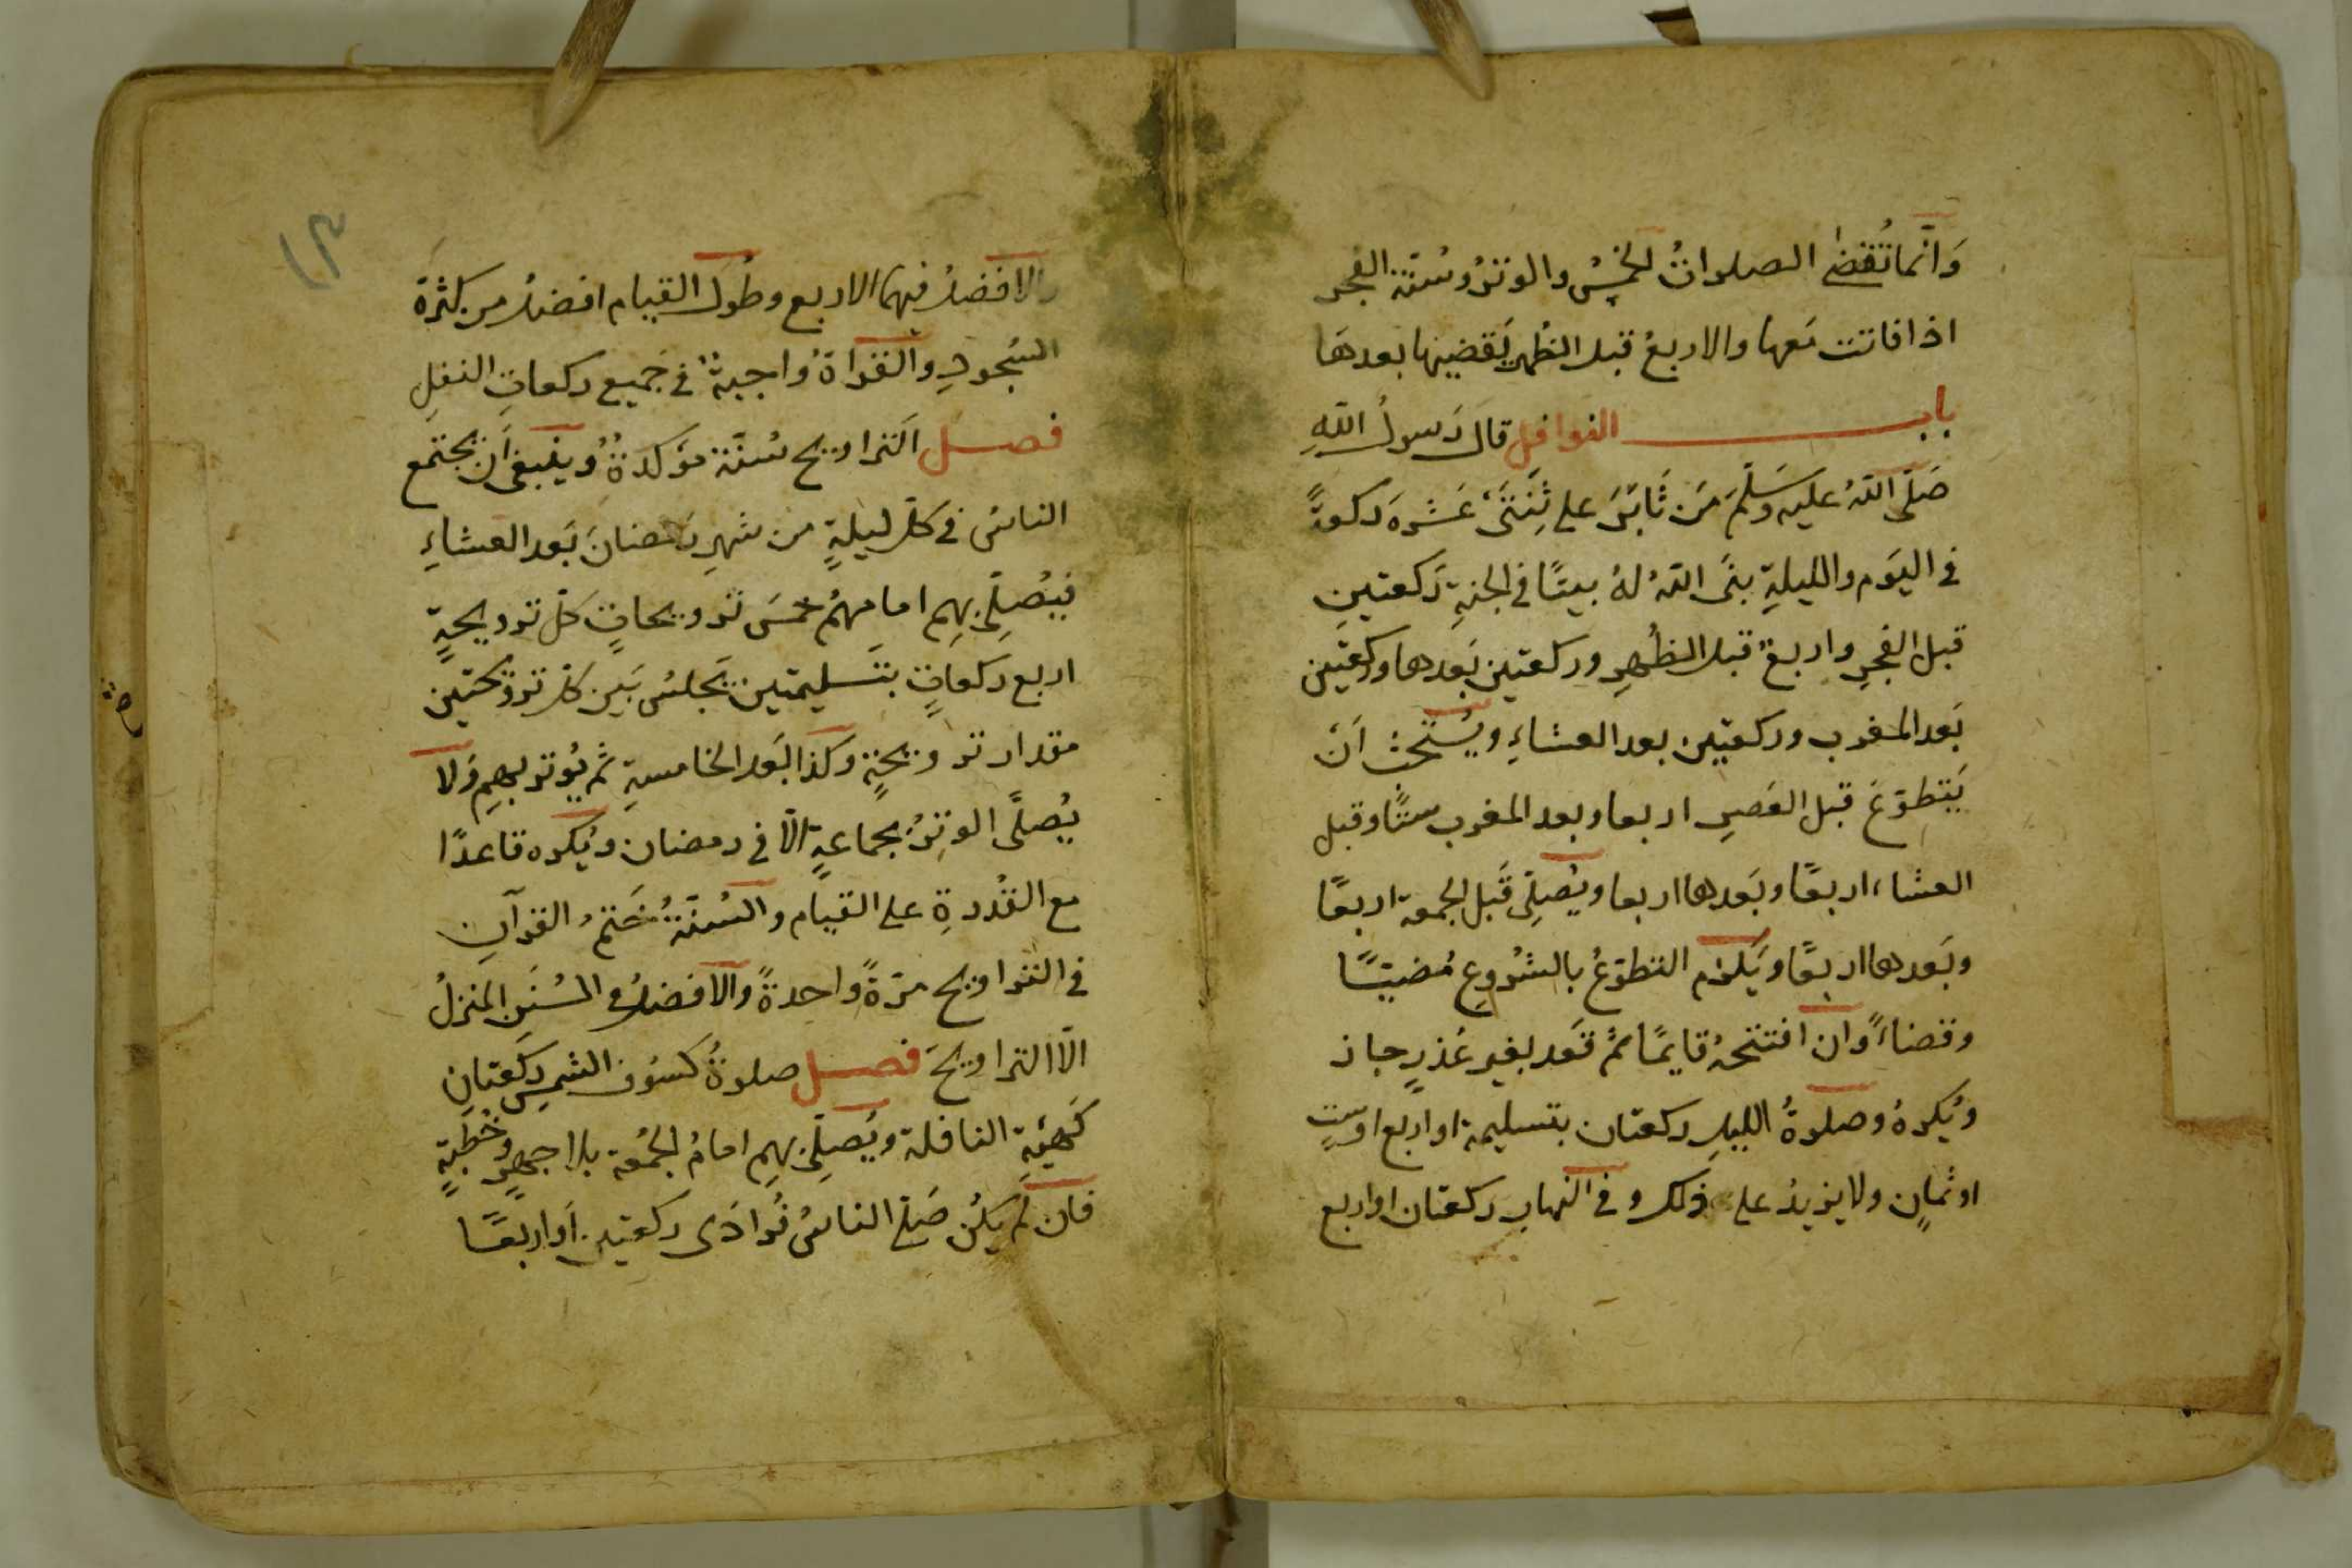 وَانَّما تُقضٰى الصلواتُ الخمسُ والوترُ وسُنّة الفجر
اذا فاتت مَعها والاربعُ قبل الظُهر يَقضيها بعدهَا
باب النوافل قالَ رَسولُ اللّهِ
صَلّى اللّهُ عليه وَسَلّمَ مَن ثَابَرَ على ثِنَتَى عَشرةَ ركعةً
فى اليَوم والليلةِ بنَى اللّهُ لهُ بيتًا فى الجنةِ رَكعتينِ
قبل الفجرِ واربعٌ قبل الظُهرِ وركعتين بَعدها وركعتين
بَعد المغرب وركعتين بعد العشاءِ ويُستَحَبُّ اَنْ
يَتَطوّعَ قبل العَصرِ اربعا وبعد المغرب ستًّا وقبل
العشاء اربعًا وبَعدها اربعا ويُصلّى قَبل الجمعة اربعًا
وبَعدها اربعًا ويَلزم التطوّعُ بالشُروعِ مُضيًّا
وقضاءً وان افتتحهُ قايمًا ثمّ قعَد بغير عُذرٍ جاز
ويُكرهُ وصلوةُ الليلِ ركعتان بتسليمة او اربع او ستٍ
او ثمانٍ ولا يزيدُ على ذلك وفى النهارِ ركعتان او اربع
والافضلُ فيهما الاربع وطُولُ القيام افضلُ من كثرة
السُجودِ والقراةُ واجبةٌ فى جَميع ركعاتِ النفلِ
فصل اَلتراويح سُنّة مؤكدةٌ وينبغى اَن يجتمع
الناسُ فى كلّ ليلةٍ من شهرِ رَمضانَ بَعد العشاءِ
فيُصلّى بهِم امامهُم خمسَ ترويحاتٍ كلّ ترويحةٍ
اربع ركعاتٍ بتَسليمتين يَجلسُ بَين كلّ ترويحتين
مقدار ترويحةٍ وكذا بَعد الخامسةِ ثم يُوتر بهِم ولا
يُصلّى الوترُ بجماعةٍ الّا فى رمضان ويُكره قاعدًا
مع القُدرةِ على القيام والسُنّةُ خَتمُ القرآنِ
فى التراويح مَرّةً واحدةً والافضلُ فى السُنَن المنزلُ
الّا التراويحَ فصل صلوةُ كسُوف الشمسِ ركعتانِ
كَهيئةِ النافلة ويُصلّى بهِم امامُ الجُمعة بلا جهرٍ وخُطبةٍ
فان لم يكُن صَلّى الناسُ فُرادَى ركعتين اَو اربعًا